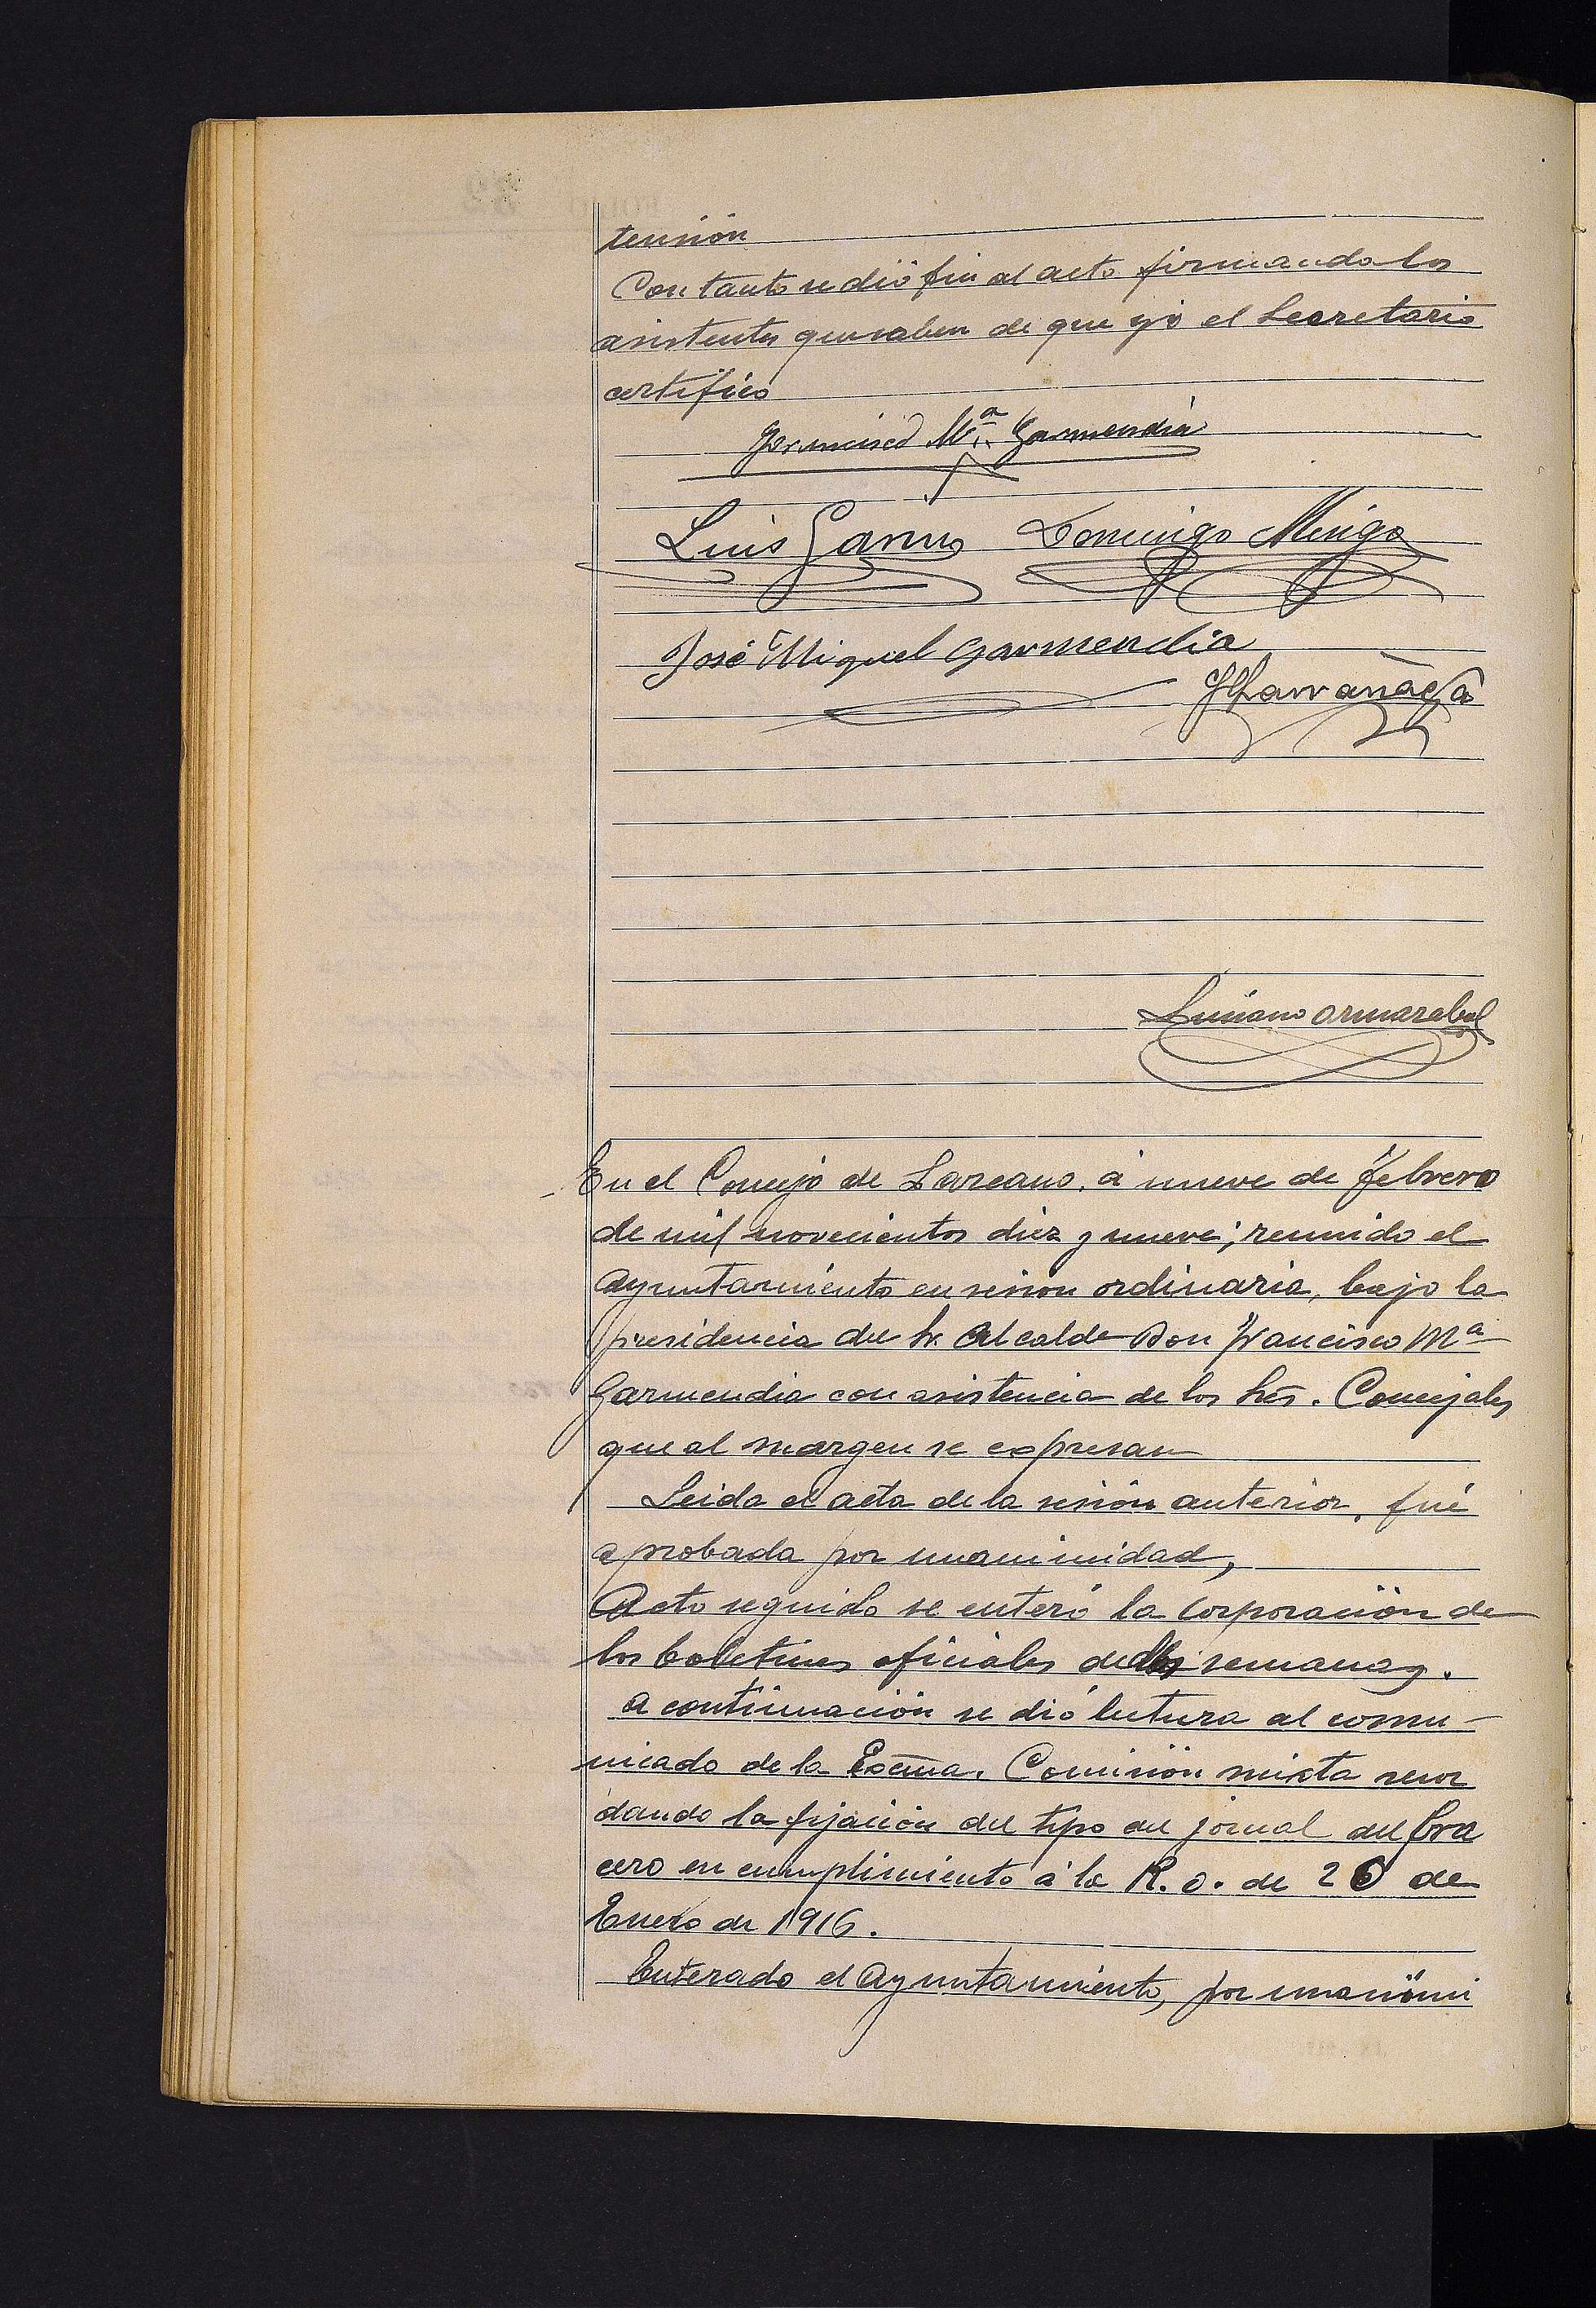 tensión
Con tanto se dió fin al acto firmando los
asistentes que saben de que yo el Secretario
certifico
Francisco Mª. Garmendia
Luis Garro Domingo Mugo
José Miguel Garmendia
JLarrañaga
Luciano Ormazabal
En el Concejo de Lazcano, á nueve de febrero
de mil novecientos diez y nueve; reunido el
Ayuntamiento en sesion ordinaria, bajo la
presidencia del Sr. Alcalde Don Francisco Mª
Garmendia con asistencia de los Srēs. Concejales
que al margen se expresan
Leida el acta de la sesión anterior, fué
aprobada por unanimidad,
Acto seguido se enteró la Corporación de
los boletines oficiales de las semanas.
A continuación se dió lectura al comu-
nicado de la Excma. Comisión mixta recor
dando la fijación del tipo del jornal del bra
cero en cumplimiento á la R. O. de 26 de
Enero de 1916.
Enterado el Ayuntamiento, por unanimi